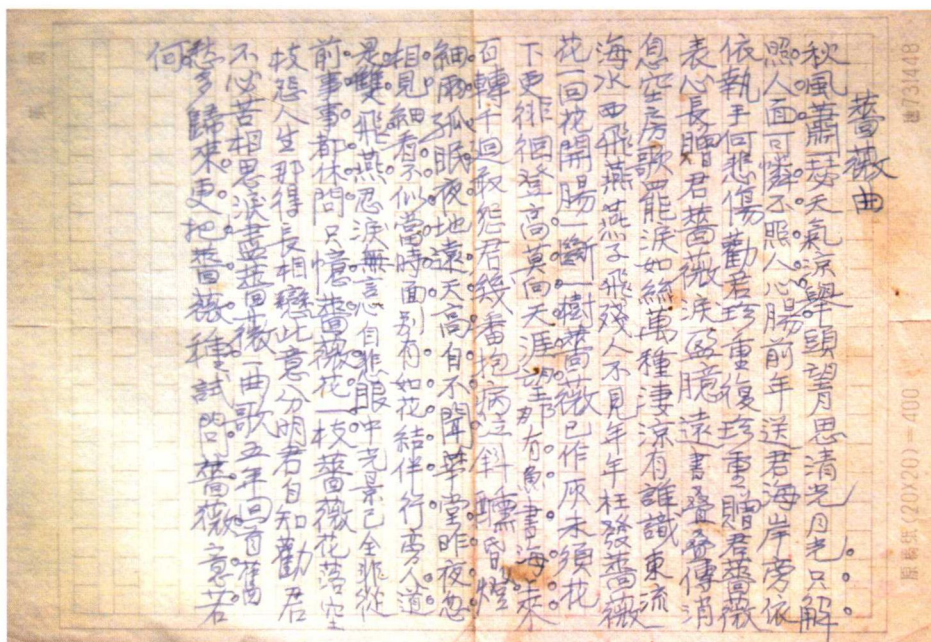 薔薇曲
秋風蕭瑟天氣涼舉頭望月思清光月光只解
照人面可憐不照人心腸前年送君海岸旁依
依執手何悲傷勸君珍重復珍重贈君薔薇
表心長贈君薔薇淚盈臆遠書叠叠傳消
息空房歌罷淚如絲萬種淒涼有誰識東流
海水西飛燕燕子飛殘人不見年年枉發薔薇
花一回花開腸一斷一樹薔薇已作灰未須花
下更徘徊登高莫向天涯望那有魚書海來
百轉千回敢怨君幾番抱病立斜曛昏燈
細雨孤眠夜地遠天高自不聞華堂昨夜忽
相見細看不似當時面別有如花結伴行旁人道
是雙飛燕忍淚無言心自悲眼中光景已全非從
前事事都休問只憶薔薇花一枝薔薇花落空
枝怨人生那得長相戀此意分明君自知勸君
不必苦相思淚盡薔薇一曲歌五年回首舊
愁多歸來更把薔薇種試問薔薇意若
何
原稿紙(20×20)=400